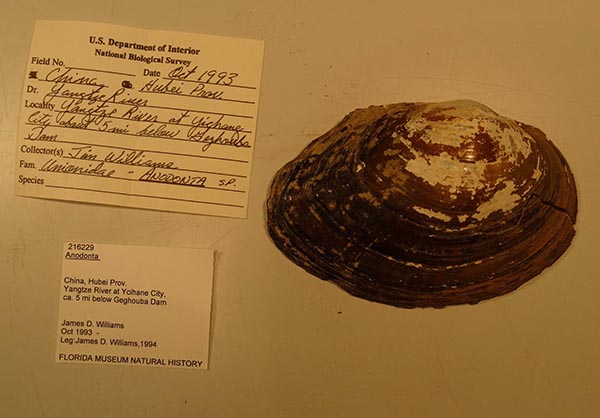 U.S. Department of Interior
National Biological Survey
Field No. Date Oct 1993
St. China Co. Hubei Prov.
Dr. Yangtze River
Locality Yangtze River at Yichane
City about 5 mi below Geghouba
Dam
Collector(s) Jim Williams
Fam. Unionidae - ANODONTA sp.
Species
216229
Anodonta
China, Hubei Prov.
Yangtze River at Ycihane City,
ca. 5 mi below Geghouba Dam
James D. Williams
Oct 1993 -
Leg:James D. Williams,1994
FLORIDA MUSEUM NATURAL HISTORY